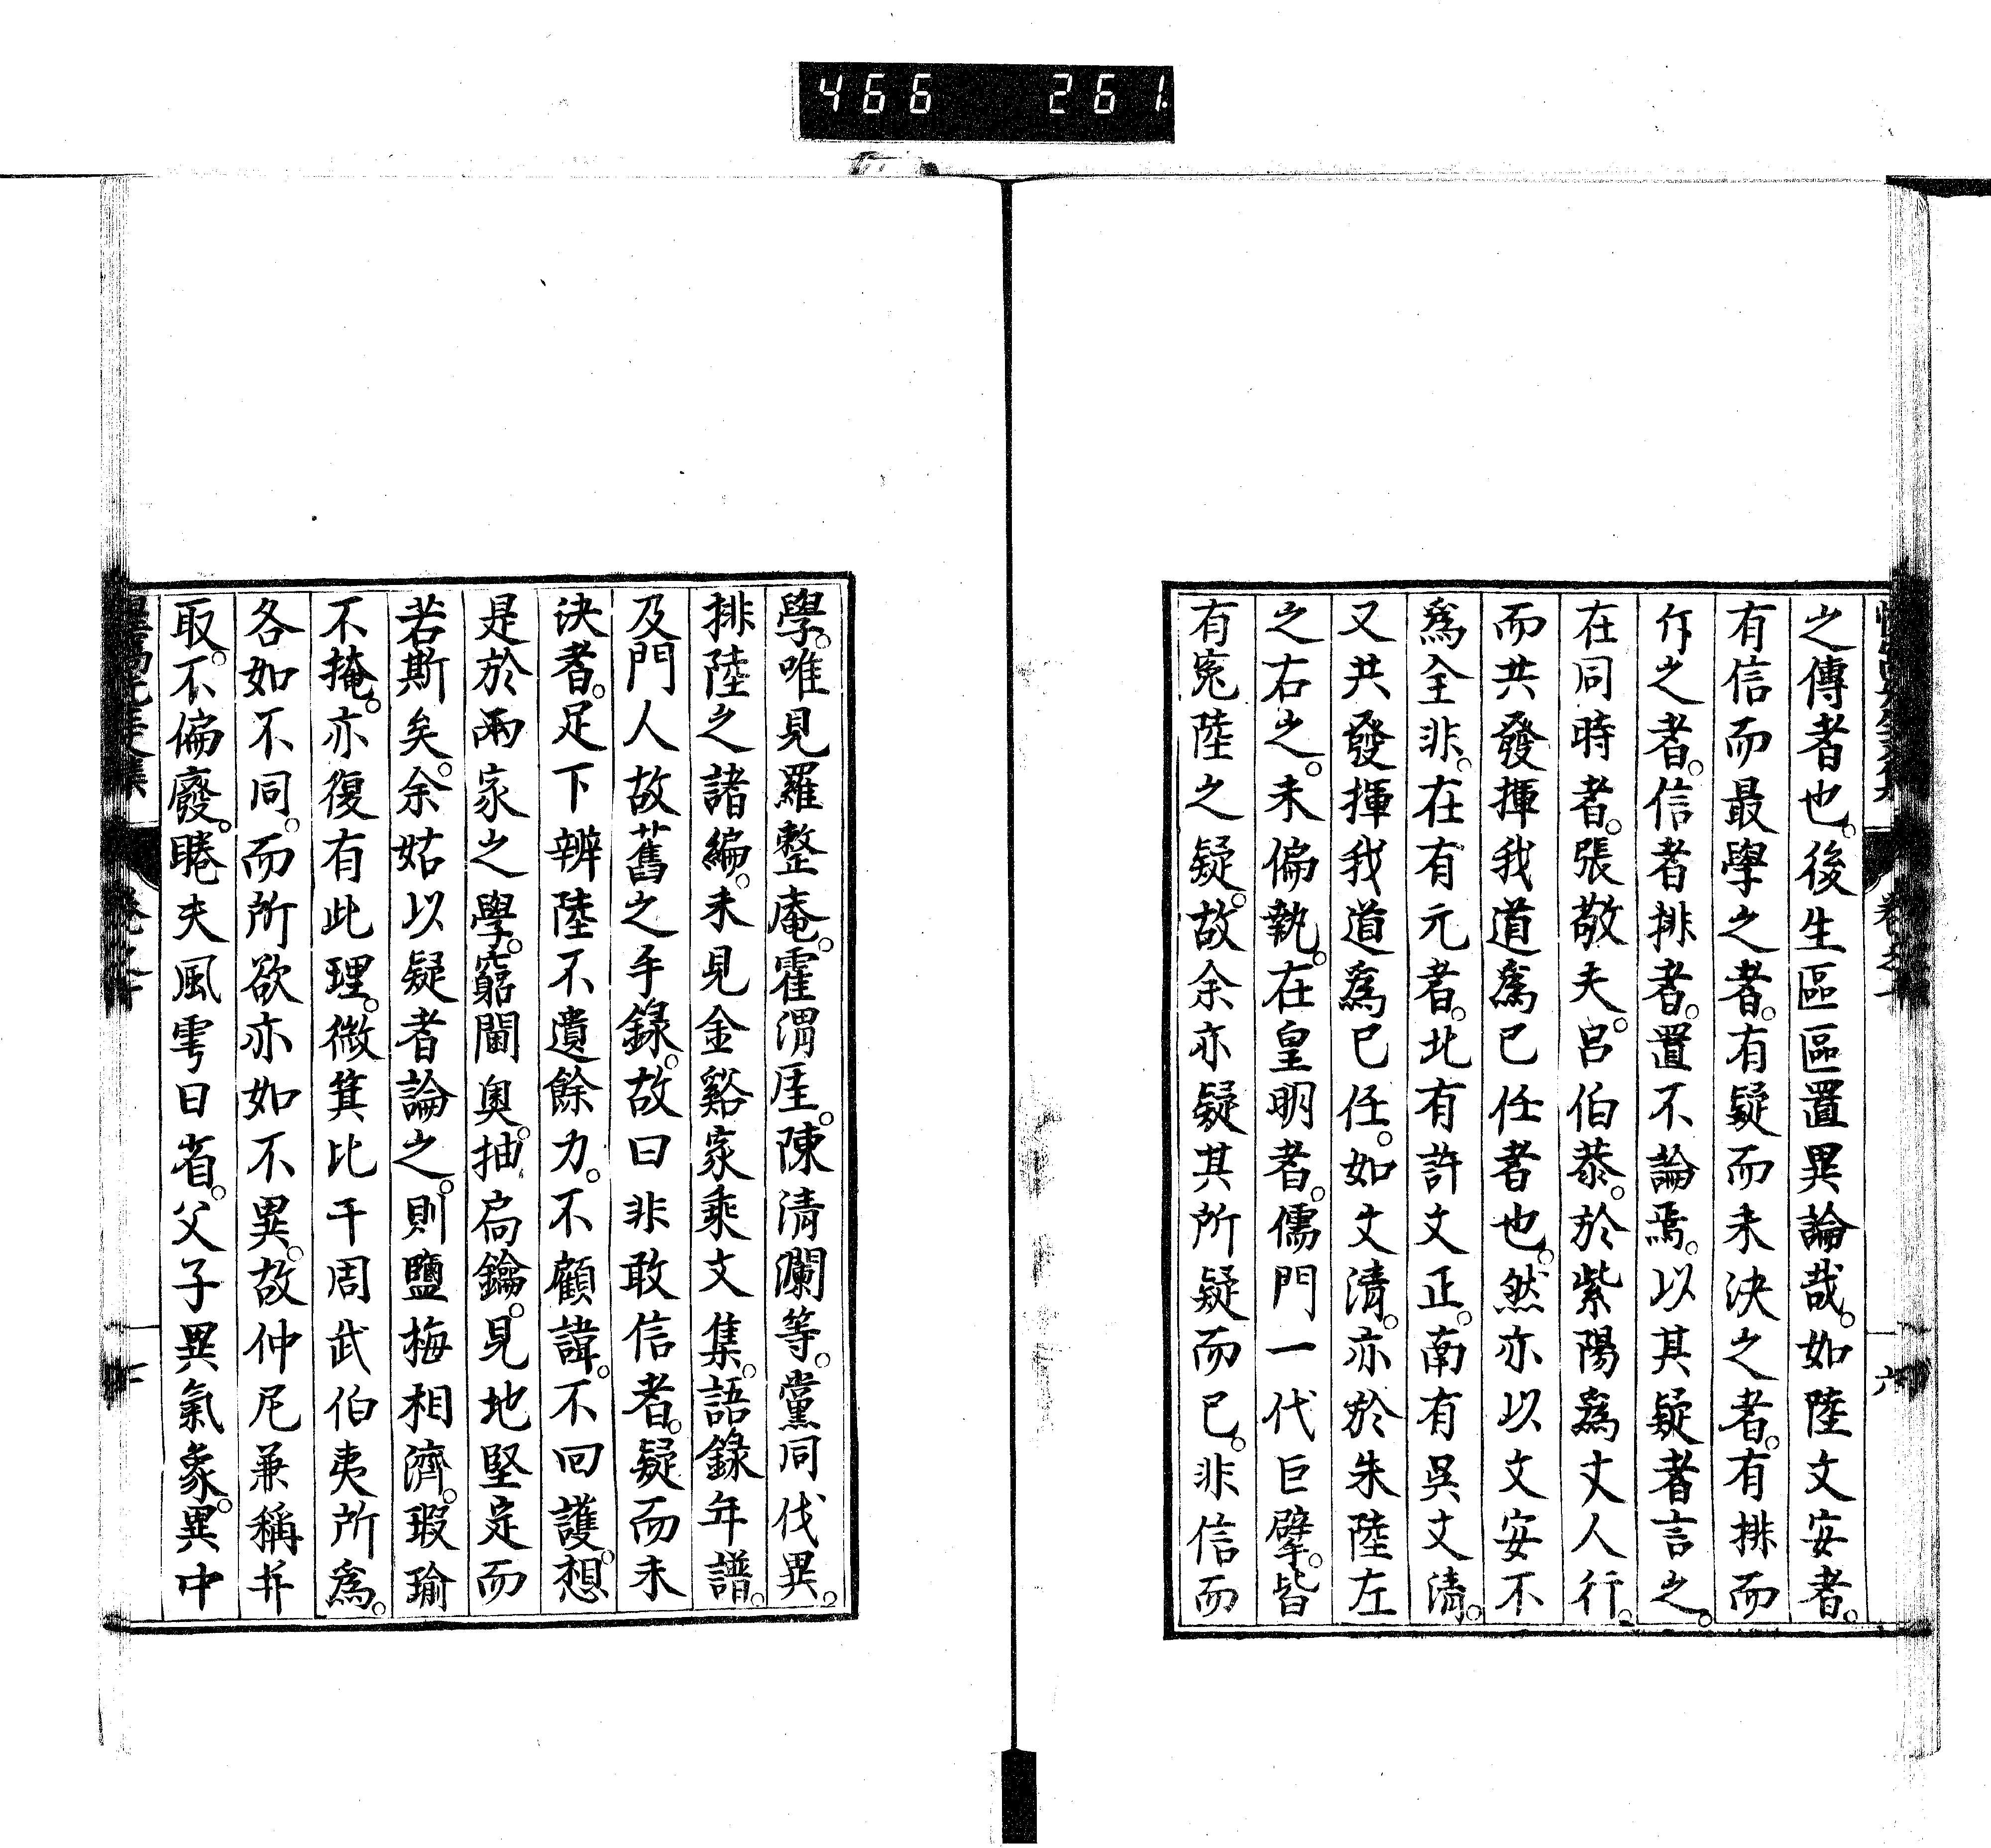 466 261
之傳者也。後生區區置異論哉。如陸文安者。
有信而最學之者。有疑而未決之者。有排而
斥之者。信者排者。置不論焉。以其疑者言之。
在同時者。張敬夫。呂伯恭。於紫陽爲丈人行。
而共發揮我道爲已任者也。然亦以文安不
爲全非。在有元者。北有許文正。南有吳文清。
又共發揮我道爲已任。如文清。亦於朱陸左
之右之。未偏執。在皇明者。儒門一代巨擘。皆
有寃陸之疑。故余亦疑其所疑而已。非信而
學。唯見羅整庵。霍渭厓。陳清瀾等。黨同伐異。
排陸之諸編。未見金谿家乘文集。語錄年譜。
及門人故舊之手錄。故曰非敢信者。疑而未
決者。足下辨陸不遺餘力。不顧諱。不回護。想
是於兩家之學。窮閫奧。抽扃鑰。見地堅定而
若斯矣。余姑以疑者論之。則鹽梅相濟。瑕瑜
不掩。亦復有此理。微箕比干周武伯夷所爲。
各如不同。而所欲亦如不異。故仲尼兼稱并
取。不偏廢。睠夫風雩日省。父子異氣象。異中